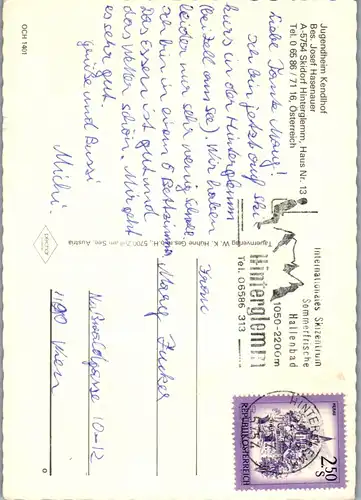 Jugendheim Kendlhof
Bes. Josef Hasenauer
A-5754 Skidorf Hinterglemm, Haus Nr. 13
Tel. 0 65 86 / 71 16, Österreich
Liebe Tante Mary!
Ich bin jetzt auf Ski
kurs in der Hinterglemm
(bei Zell am See). Wir haben
leider nur sehr wenig Schnee
Ich bin in einem 6 Bettzimmer
Das Essen ist gut und
das Wetter schön. Mir geht
es sehr gut
Grüße und Bussi
Michi.
OCH 1401
Tauernverlag W. K. Hühne Ges.m.b.H., 5700 Zell am See, Austria
Internationales Skizentrum
Sommerfrische
Hallenbad
1050-2200m
Hinterglemm
Tel. 06586 313
HINTERGLEMM
2.50
S
MURAU
REPUBLIK ÖSTERREICH
Frau
Mary Zucker
10-12
1190 Wien